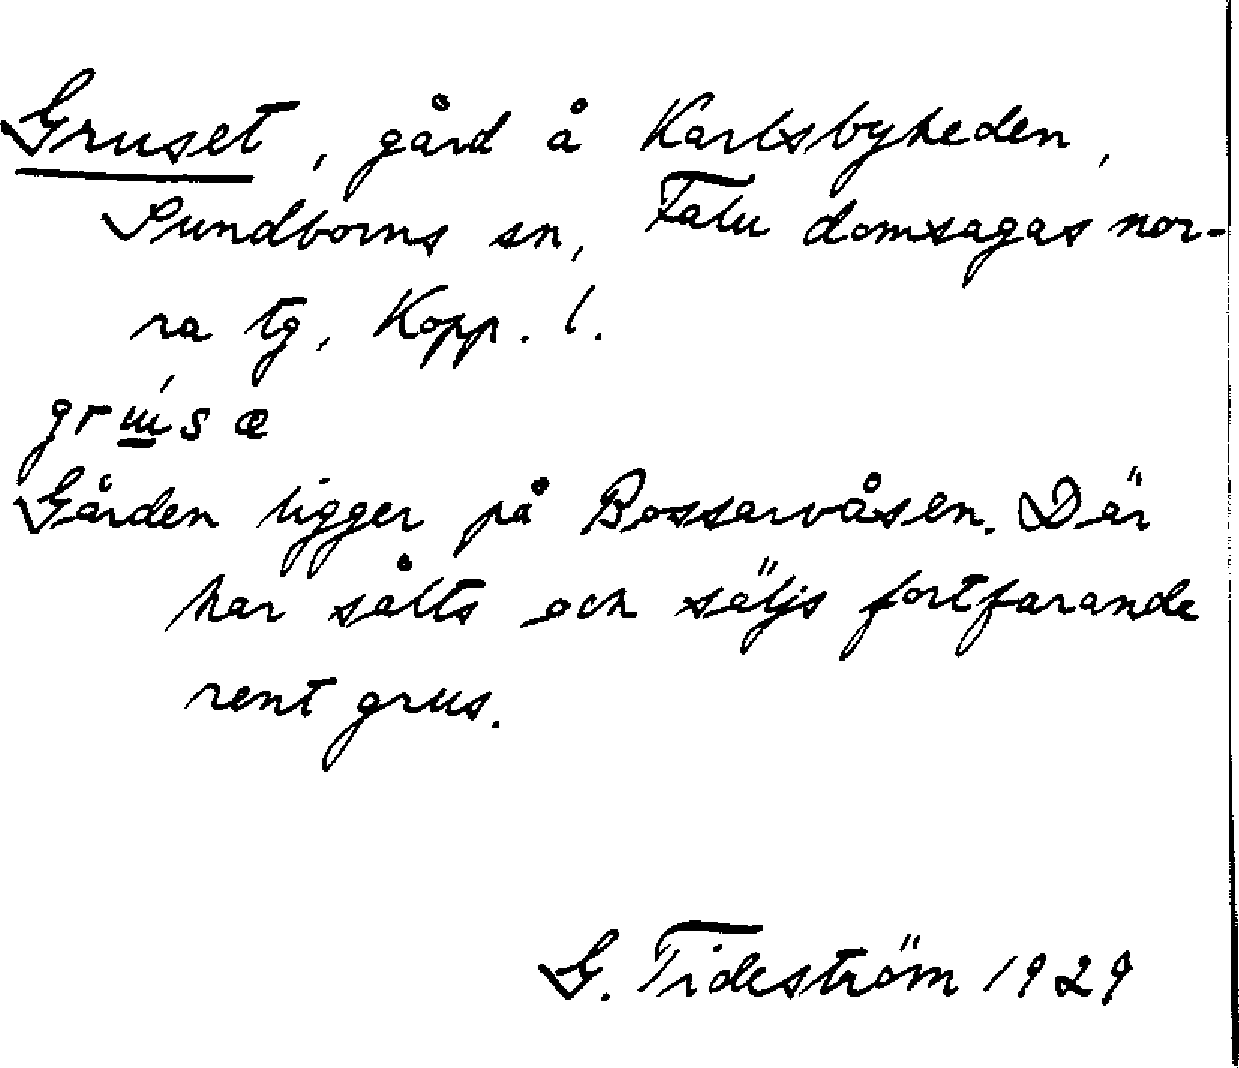 Gruset, gård å Karlsbyheden,
Sundborns sn, Falu domsagas nor-
ra tg, Kopp. l.
Gården ligger på Bossarvåsen. Där
har sålts och säljs fortfarande
rent grus.
G. Tideström 1929